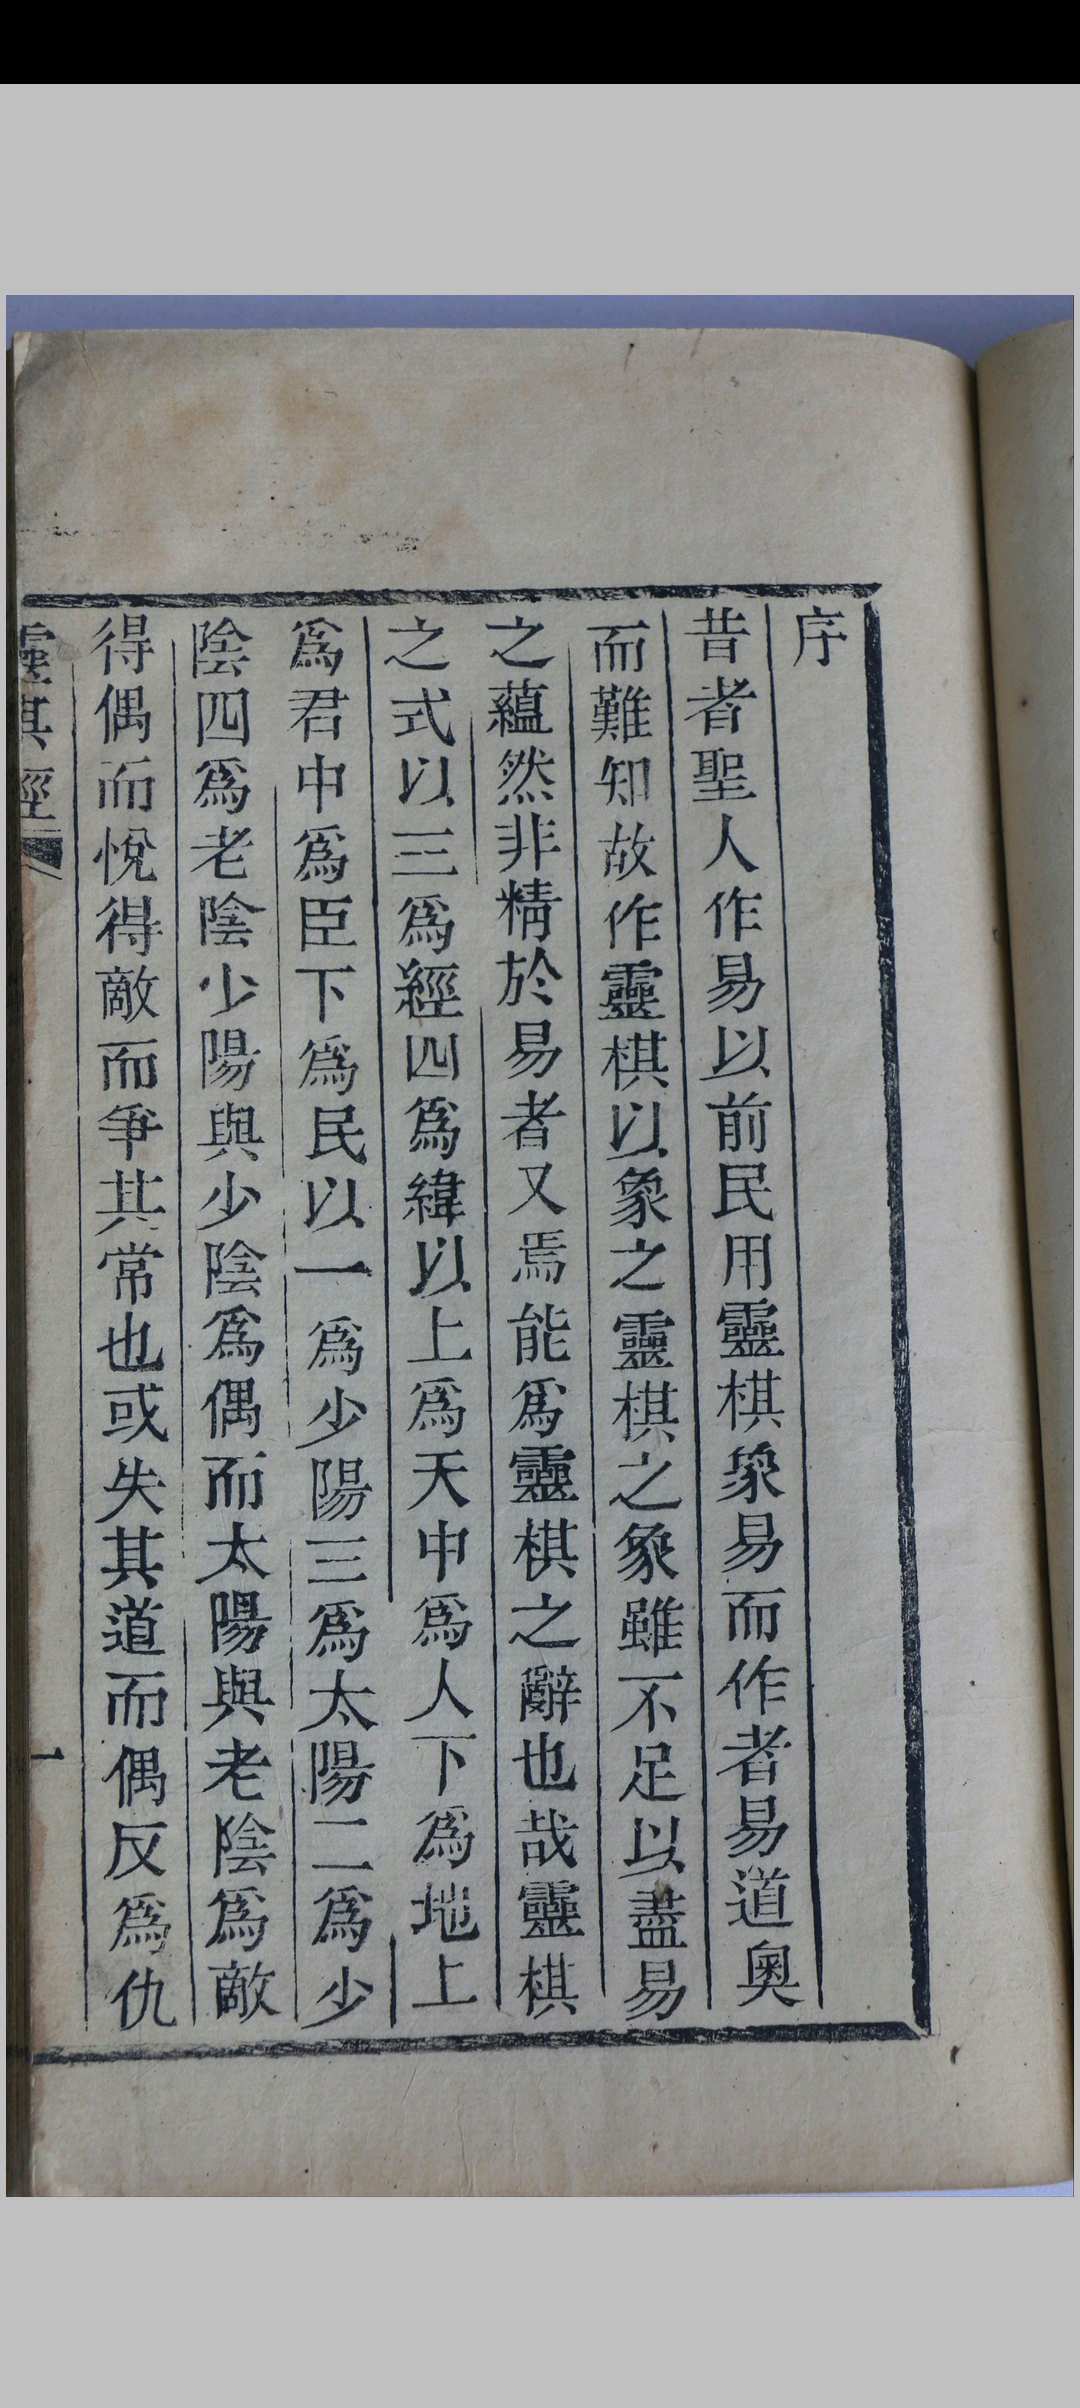 序
昔者聖人作易以前民用靈棋象易而作者易道奧
而難知故作靈棋以象之靈棋之象雖不足以盡易
之蘊然非精於易者又焉能爲靈棋之辭也哉靈棋
之式以三爲經四爲緯以上爲天中爲人下爲地上
爲君中爲臣下爲民以一爲少陽三爲太陽二爲少
陰四爲老陰少陽與少陰爲偶而太陽與老陰爲敵
得偶而悅得敵而爭其常也或失其道而偶反爲仇
靈棋經
一